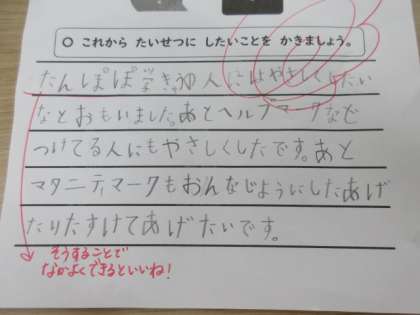 ○ これから たいせつに したいことを かきましょう。
たんぽぽ学きゅうの人にはやさしくしたい
なとおもいました。あとヘルプマークなど
つけてる人にもやさしくしたです。あと
マタニティマークもおんなじようにしたあげ
たりたすけてあげたいです。
そうすることで
なかよくできるといいね!